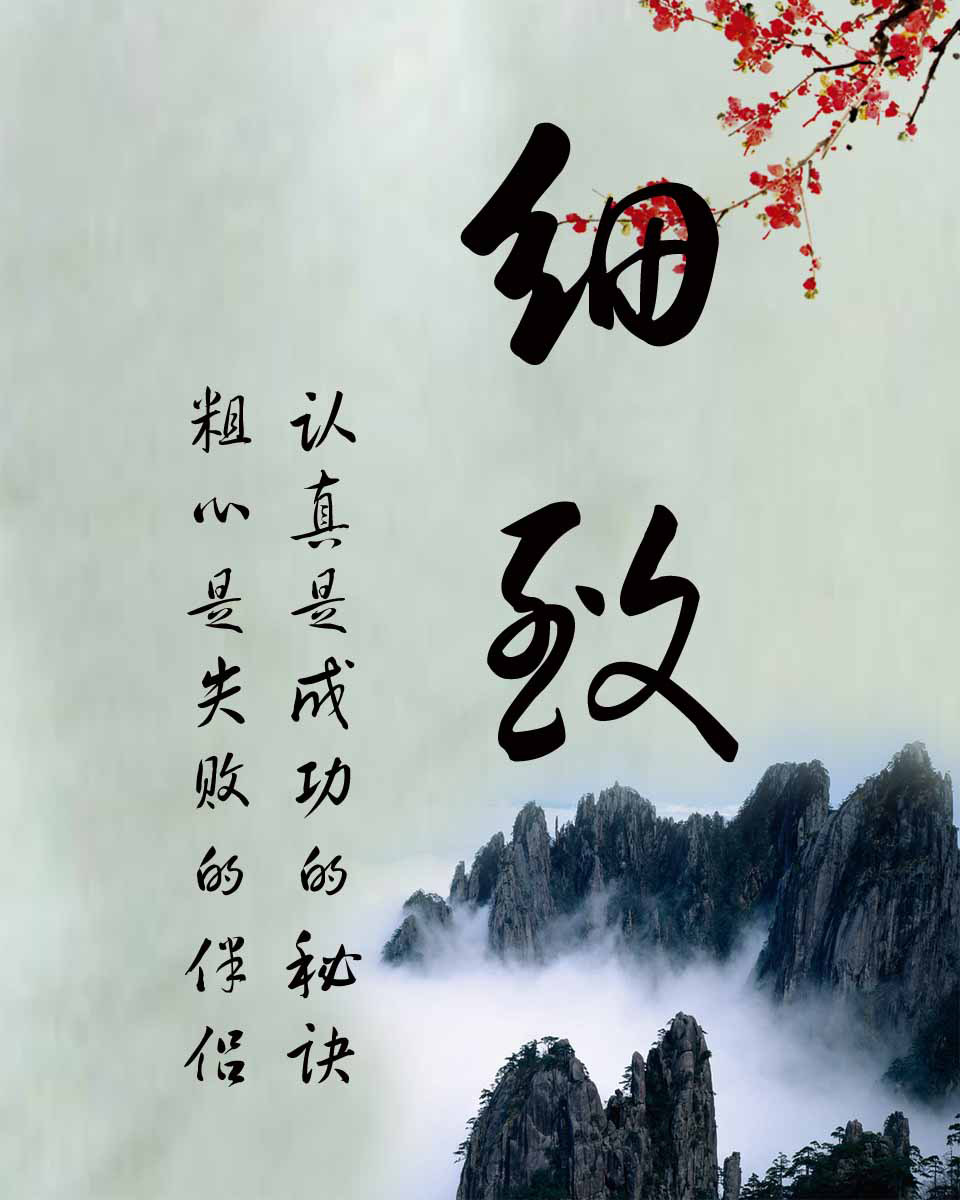 细致
认真是成功的秘诀
粗心是失败的伴侣